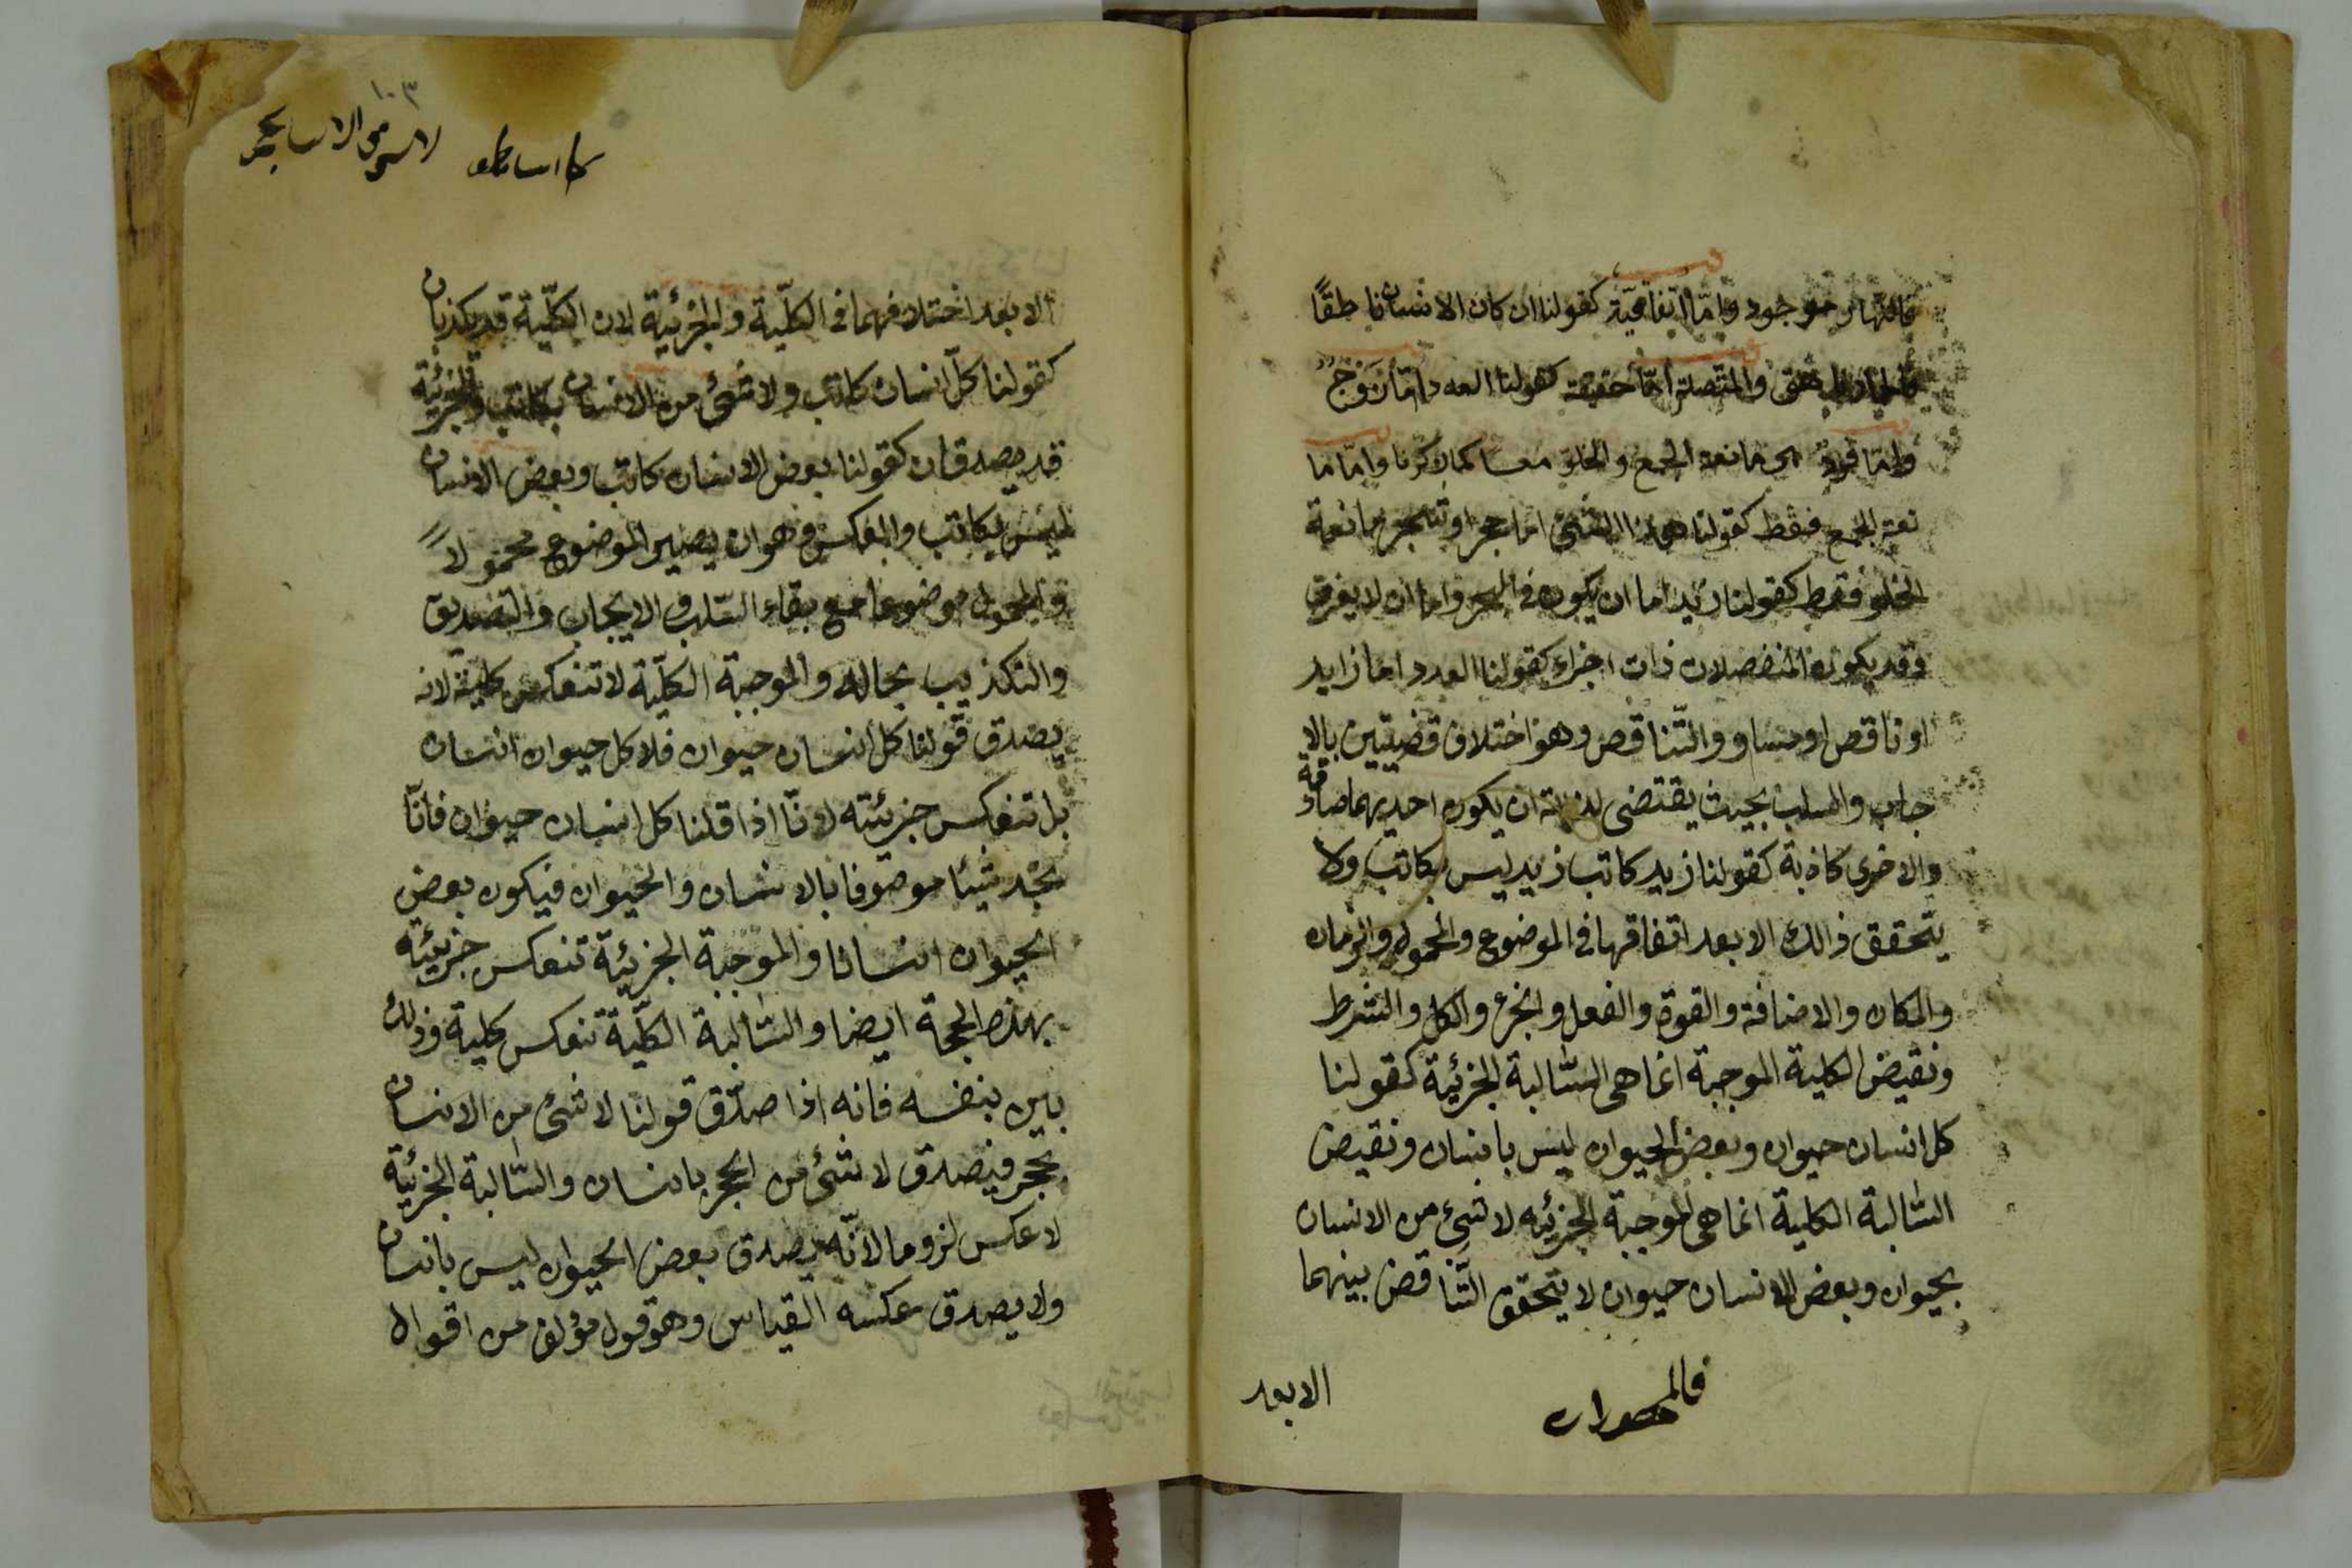 فالنهار موجود وامّا اتفاقيّة كقولنا ان كان الانسان ناطقًا
فالحمار ناهق والمتّصلة امّا حقيقة كقولنا العدد امّا زَوْجٌ
وامّا فرد هى مانعة الجمع والخلو معا كما ذكرنا وامّا ما
نعة الجمع فقط كقولنا هذا الشئ اما حجر او شجر مانعة
الخلو فقط كقولنا زيد اما ان يكون فى البحر واما ان لا يغرق
وقد يكون المنفصلات ذات اجزاء كقولنا العدد اما زايد
او ناقص او مساو والتّناقص وهو اختلاف قضيتين بالا
جاب والسلب بحيث يقتضى لذاته ان يكون احديهما صادقة
والاخرى كاذبة كقولنا زيد كاتب زيد ليس بكاتب ولا
يتحقق ذالك الا بعد اتفاقهما فى الموضوع والمحمول والزمان
والمكان والاضافة والقوة والفعل والجزء والكل والشرط
ونقيض الكلية الموجبة انما هى السّالبة الجزئية كقولنا
كل انسان حيوان وبعض الحيوان ليس بانسان ونقيض
السّالبة الكلية انما هى الموجبة الجزئيه لا شئ من الانسان
بحيوان وبعض الانسان حيوان لا يتحقق التّناقض بينهما
فالمحصورات
الا بعد
١٠٣
لا شئ من الانسان بحجر
الا بعد اختلافهما فى الكلّية والجزئية لان الكلّية قد يكذبان
كقولنا كلّ انسان كاتب ولا شئ من الانسان بكاتب والجزئية
قد يصدقان كقولنا بعض الانسان كاتب وبعض الانسان
ليس بكاتب والعكس وهو ان يصير الموضوع محمولاً
والمحمول موضوعا مع بقاء السّلب والايجاب والتصديق
والتكذيب بحاله والموجبة الكلّية لا تنعكس كلية لانه
يصدق قولنا كل انسان حيوان فلا كل حيوان انسان
بل تنعكس جزئيّته لانّا اذا قلنا كل انسان حيوان فانّا
نجد شيئا موصوفا بالانسان والحيوان فيكون بعض
الحيوان انسانا والموجبة الجزئية تنعكس جزئية
بهذه الحجة ايضا والسّالبة الكلّية تنعكس كلية وذلك
بين بنفسه فانه اذا صدق قولنا لا شئ من الانسان
بحجر فيصدق لا شئ من الحجر بانسان والسّالبة الجزئية
لا عكس لزوما لانّه يصدق بعض الحيوان ليس بانسان
ولا يصدق عكسه القياس وهو قول مؤلف من اقوال